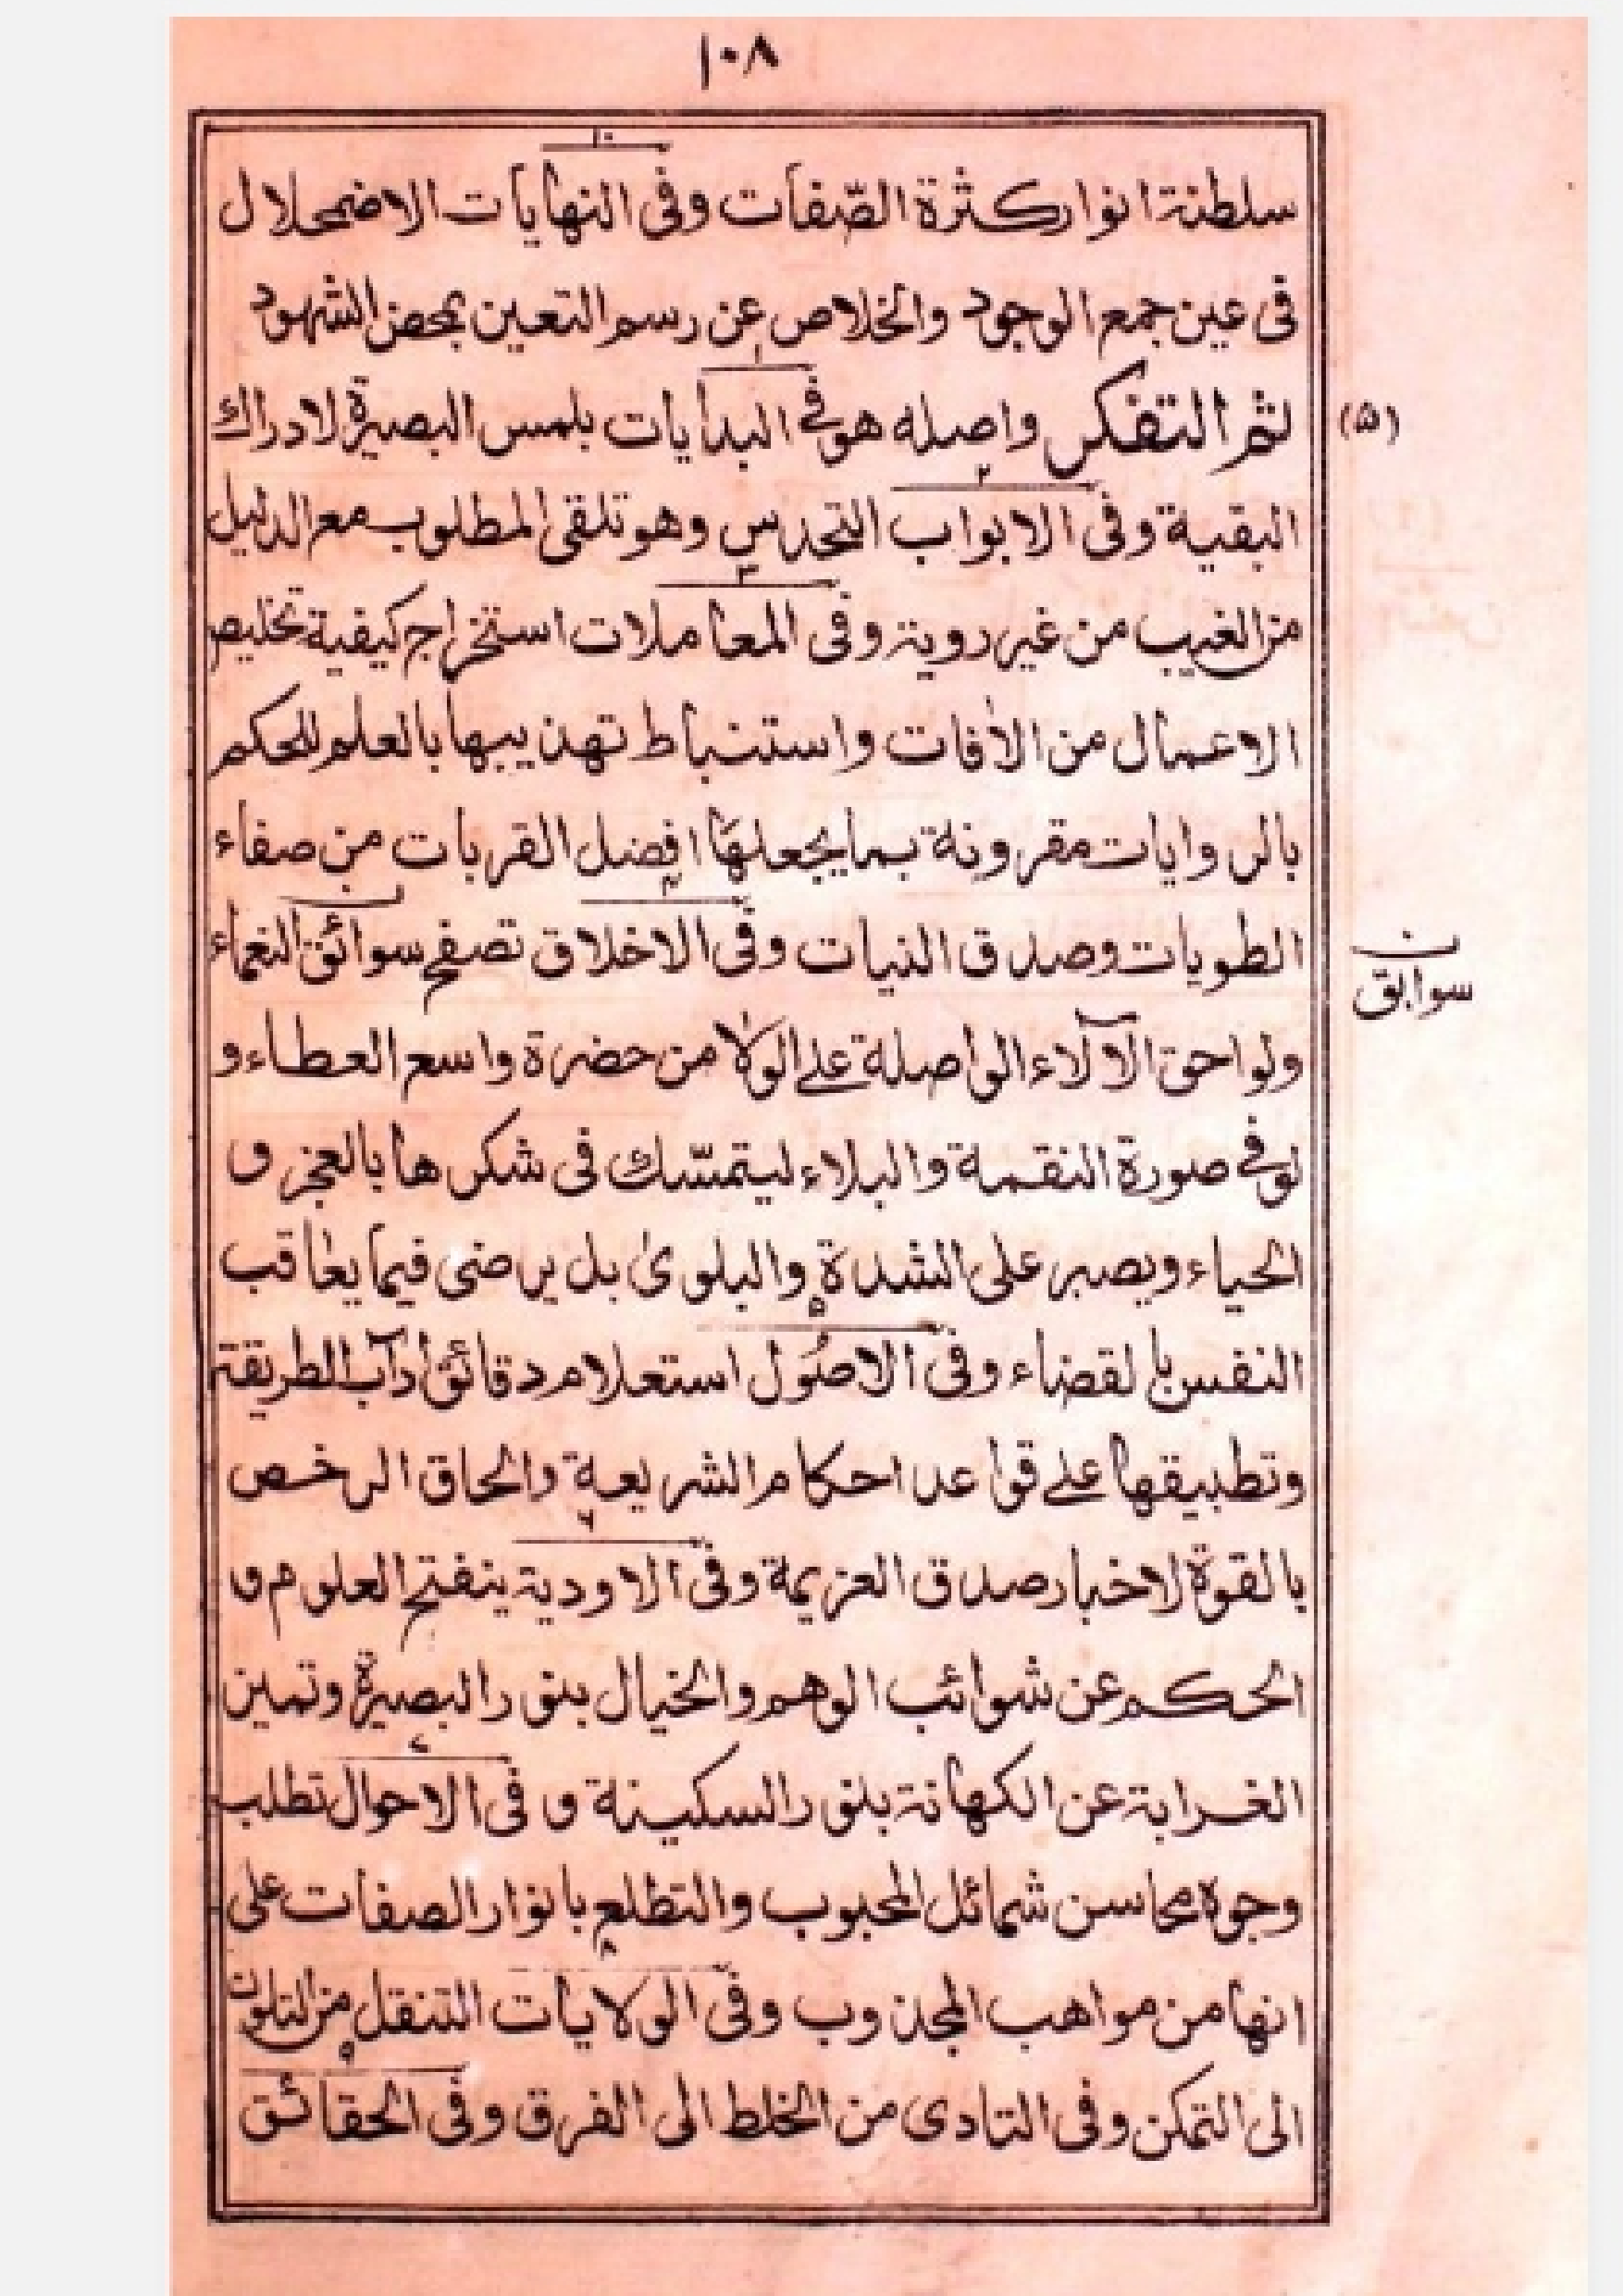 ١٠٨
١٠
سلطنة انوار كثرة الصّفات وفى النهايات الاضمحلال
فى عين جمع الوجود والخلاص عن رسم التعين بمحض الشهود
١
(۵)
ثم التفكر واصله هو فى البدايات بلمس البصيرة لادراك
٢
البقية وفى الابواب التحدس وهو تلقى المطلوب مع الدليل
٣
من الغيب من غير روية وفى المعاملات استخراج كيفية تخليص
الاعمال من الاٰفات واستنباط تهذيبها بالعلم للحكم
بالروايات مقرونة بما يجعلها افضل القربات من صفاء
۴
ن
الطويات وصدق النيات وفى الاخلاق تصفح سوائق النعماء
ن
سوابق
ولواحق الآلاء الواصلة على الولا من حضرة واسع العطاء و
لو فى صورة النقمة والبلاء ليتمسّك فى شكرها بالعجز و
الحياء ويصبر على الشدة والبلوىٰ بل يرضى فيما يعاقب
۵
النفس بالقضاء وفى الاصُول استعلام دقائق اٰداب الطريقة
وتطبيقها على قواعد احكام الشريعة والحاق الرخص
۶
بالقوة لاخبار صدق العزيمة وفى الاودية ينفتح العلوم و
الحكم عن شوائب الوهم والخيال بنور البصيرة وتميز
۷
الغرابة عن الكهانة بنور السكينة و فى الاحوال تطلب
وجوه محاسن شمائل المحبوب والتطلع بانوار الصفات على
۸
انها من مواهب المجذوب وفى الولايات التنقل من التلون
۹
الى التمكن وفى التادى من الخلط الى الفرق وفى الحقائق